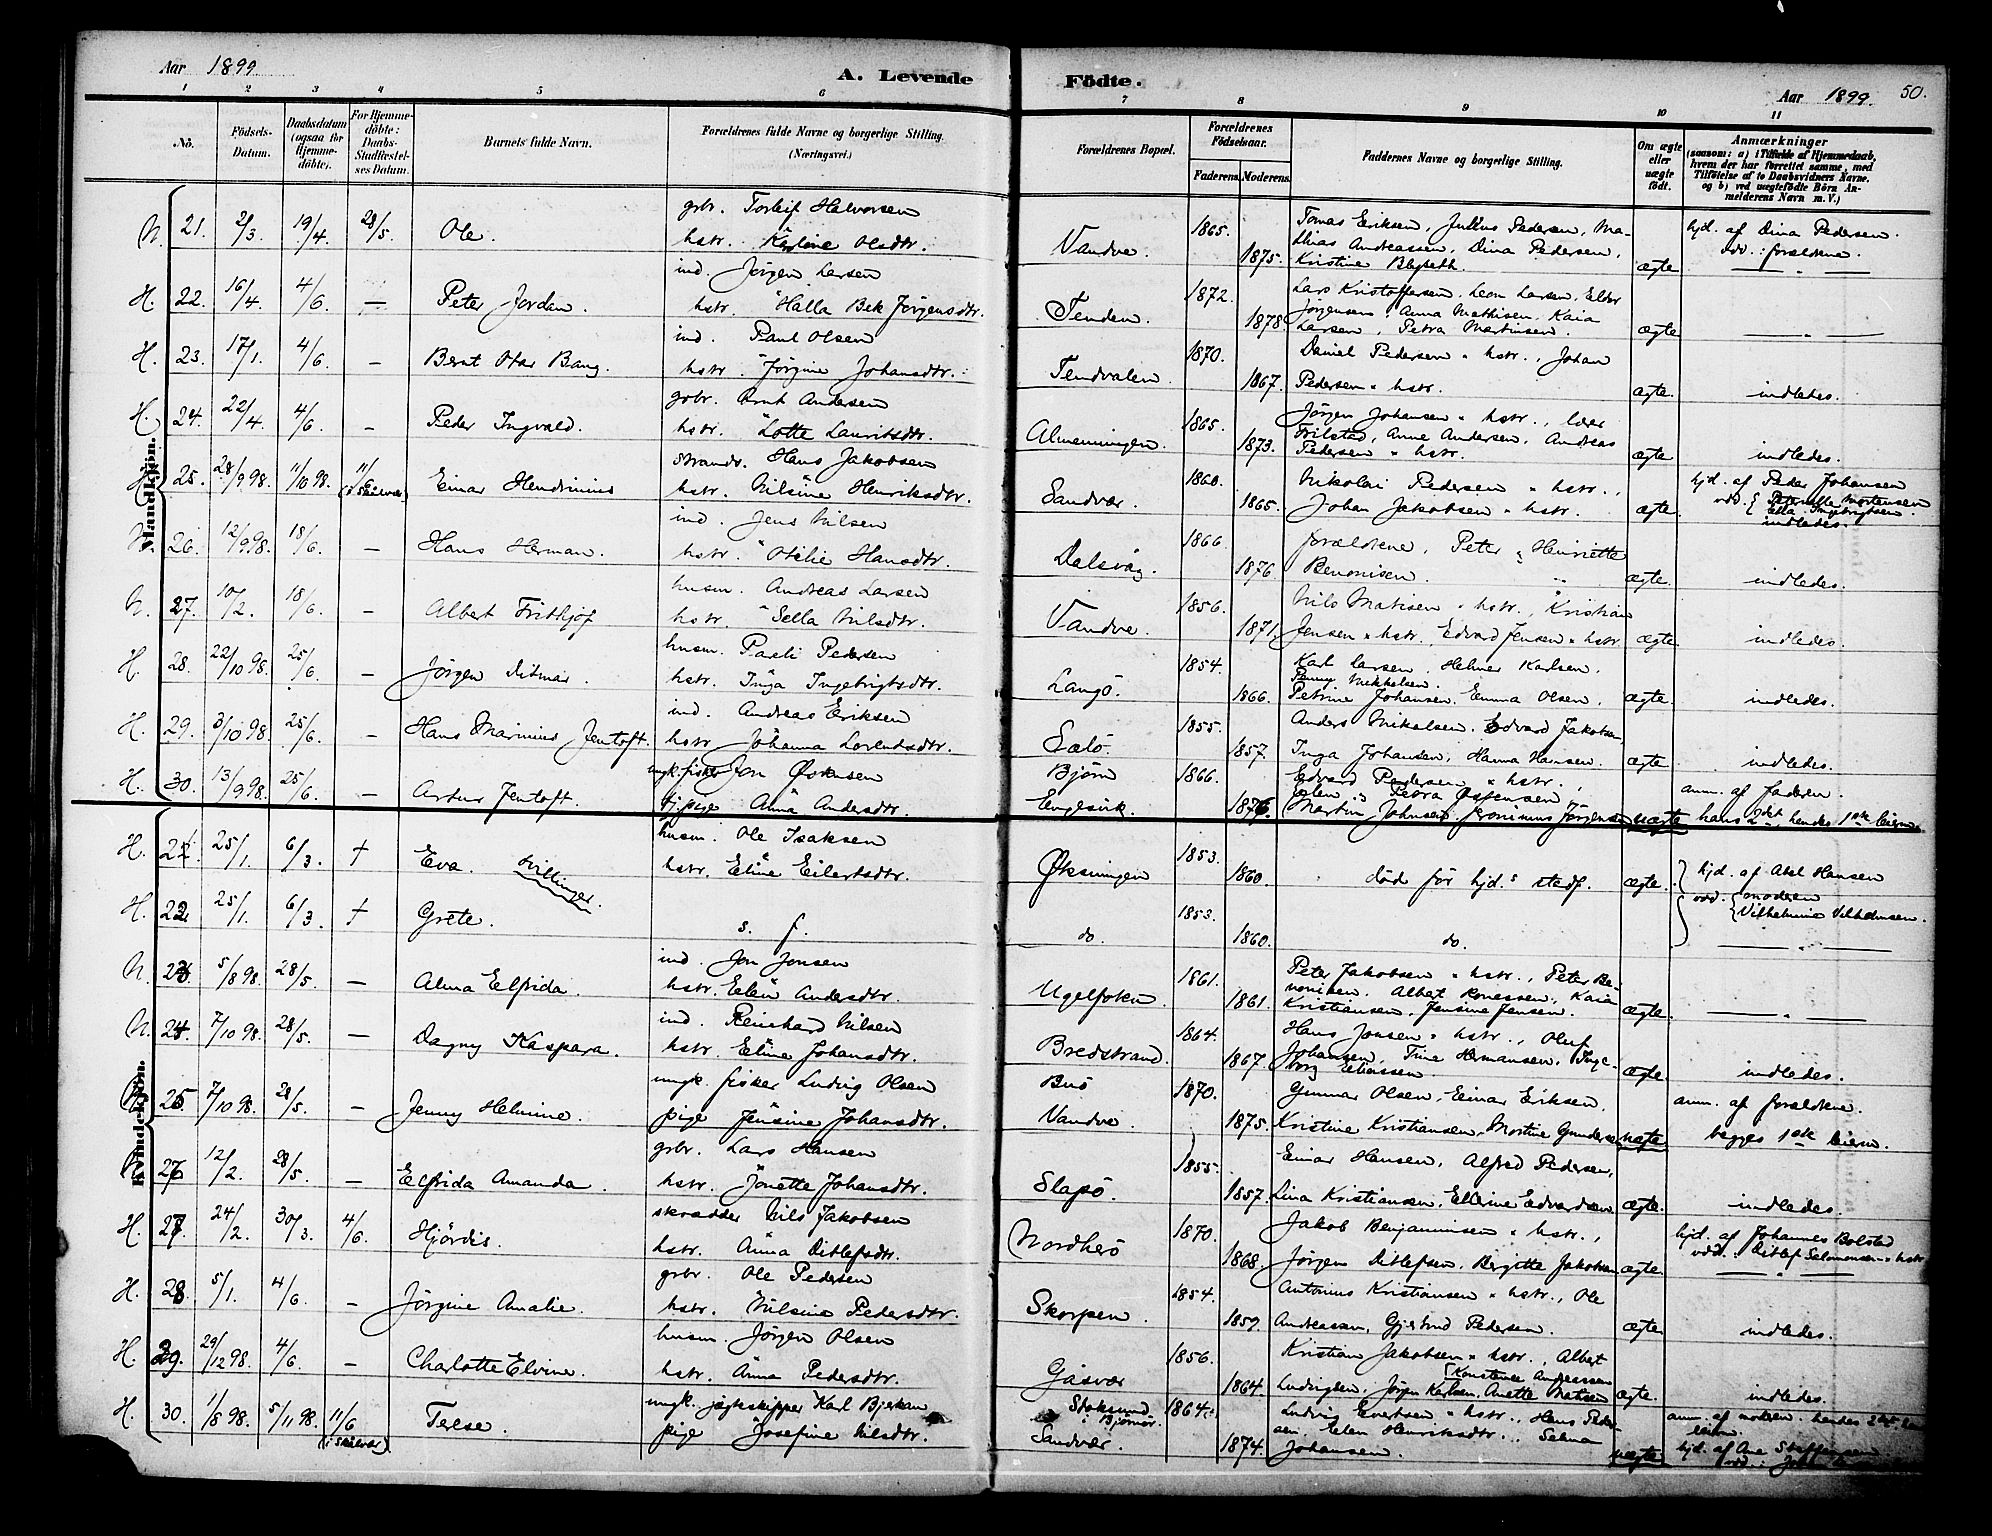 Aar 1899
A. Levende Födte.
Aar 1899. 50.
1 2 3 4 5 6 7 8 9 10 11
Nö.
Födsels-Datum.
Daabsdatum (ogsaa for Hjemme-döbte).
For Hjemme-döbte: Daabs-Stadfæstel-ses Datum.
Barnets fulde Navn.
Forældrenes fulde Navne og borgerlige Stilling. (Næringsvei.)
Forældrenes Bopæl.
Forældrenes Födselsaar.
Faderens. Moderens.
Faddernes Navne og borgerlige Stilling.
Om ægte eller uægte födt.
Anmærkninger
(saasom: a) i Tilfælde af Hjemmedaab, hvem der har forrettet samme, med Tilföielse af to Daabsvidners Navne, og b) ved uægtefödte Börn An-melderens Navn m. V.)
Mandkjön.
N. 21. 2/3 19/4. 28/5. Ole. gbr. Torleif Halvorsen
hstr. Karline Olsdtr. Vandve. 1865. 1875. Tomas Eriksen, Julius Pedersen, Ma-
thias Andreassen, Dina Pedersen,
Kristine ægte hjd. af Dina Pedersen.
vdv.: forældrene.
H. 22. 16/4. 4/6. — Peter Jordan. ind. Jørgen Larsen
hstr. Halla Bek Jørgensdtr. Tenden. 1872. 1878 Lars Kristoffersen, Leon Larsen,
Jørgensen, Anna Mathisen, Kaia
Larsen, Petra Martinsen. ægte — " —
H. 23. 17/1. 4/6. — Bernt Otar Bang. ind. Paul Olsen
hstr. Jørgine Johansdtr. Tendvalen. 1870. 1867. Daniel Pedersen " hstr., Johan
Pedersen " hstr. ægte. indledes.
H. 24. 22/4. 4/6. — Peder Ingvald. gbr. Arnt Andersen
hstr. Lotte Lauritsdtr. Almenningen. 1865. 1873. Jörgen Johansen " hstr., lærer
Frilstad, Anne Andersen, Andreas
Pedersen " hstr. ægte indledes.
25. 28/9 98. 11/10 98. 11/6 (i Skålvær) Einar Hendrinius strands. Hans Jakobsen
hstr. Nilsine Henriksdtr. Sandvær. 1860. 1865. Nikolai Pedersen " hstr.,
Johan Jakobsen " hstr. ægte hjd. af Peder Johansen
vdd. { Peternelle Mortensen
Ella Ingebrigtsen
indledes.
26. 12/9 98. 18/6. — Hans Herman. ind. Jens Nilsen
hstr. Otelie Hansdtr. Dalsvåg. 1866. 1876. forældrene, Peter " Henriette
Benonisen. ægte. indledes.
N. 27. 10/2. 18/6. — Albert Frithjof husm. Andreas Larsen
hstr. Sella Nilsdtr. Vandve. 1856. 1871. Nils Matisen " hstr., Kristian
Jensen " hstr. Edvard Jensen " hstr. ægte indledes.
H. 28. 22/10 98. 25/6. — Jørgen Ditmar. husm. Parli Pedersen
hstr. Inga Ingebrigtsdtr. Langö. 1854. 1866. Karl Larsen, Helmer Karlsen,
Penny Mikkelsen.
Petrine Johansen, Emma Olsen, ægte. indledes.
H. 29. 3/10 98. 25/6. — Hans Marinius Jentoft. ind. Andreas Eriksen
hstr Johanna Lorentsdtr. Selö. 1855. 1857. Anders Mikalsen, Edvard Jakobsen,
Inga Johansen, Hanna Hansen. ægte indledes.
H. 30. 13/9 98. 25/6. — Artur Jentoft. ungk. fisker Jon
tj.pige Anna Andersdtr. Björn
Engesvik. 1866. 1876. Edvard Pedersen " hstr.,
Martin Johnsen, Jeronimus Jørgensen uægte anm. af faderen.
hans 2det hendes 1ste leierm.
Kvindekjön.
H. 21. 25/1. 6/3. † Eva. tvillinger. husm. Ole Isaksen
hstr. Eline Eilertsdtr. Øksningen 1853. 1860. död før hjd.s stadf. ægte. hjd. af Abel Hansen
vdd. { moderen
Vilhelmine Vilhelmsen.
H. 22. 25/1. 6/3. † Grete. s. f. do. 1853. 1860. do. — " —
N. 23. 5/8 98. 28/5. — Alma Elfrida. ind. Jon Jonsen
hstr. Elen Andersdtr. Ugelfoten. 1861. 1861. Peter Jakobsen " hstr., Peter Be-
nonisen. Albert Konessen, Kaia
Kristiansen, Jensine Jensen. ægte. — " —
N. 24. 7/10 98. 28/5. — Dagny Kaspara. ind. Reinhard Nilsen
hstr. Eline Johansdtr. Bredstrand. 1864. 1867. Hans Jonsen " hstr., Oluf
Johansen, Tine Hermansen, Inge-
borg Eliassen ægte. indledes.
25. 7/10 98. 28/5. — Jenny Helmine. ungk. fisker Ludvig Olsen
pige Jensine Johansdtr. Buö
Vandve. 1870. 1875. Gunnar Olsen, Einar Eriksen,
Kristine Kristiansen, Mortine Gundersen uægte anm. af forældrene.
begges 1ste leierm.
26 12/2. 28/5. — Elfrida Amanda. gbr. Lars Hansen
hstr. Jonette Johansdtr. Slapö. 1855. 1857. Einar Hansen, Alfred Pedersen,
Lina Kristiansen, Ellerine Edvardsen ægte. indledes.
H. 27. 24/2. 30/3. 4/6. Hjördis. skrædder Nils Jakobsen
hstr. Anna Ditlefsdtr. Nordherö 1870. 1868. Jakob Benjaminsen " hstr.,
Jørgen Ditlefsen, Bergitte Jakobsen ægte. hjd. af Johannes Bolstad
vdd.: Ditlef Salomonsen " hstr
— " —
H. 28. 5/1. 4/6. — Jörgine Amalie. gbr. Ole Pedersen
hstr. Nilsine Pedersdtr. Skorpen. 1854. 1859. Antonius Kristiansen " hstr., Ole
Andreassen, Gjertrud Pedersen. ægte indledes.
H. 29. 29/12 98. 4/6. — Charlotte Elvine. husm. Jørgen Olsen
hstr. Anna Pedersdtr. Gåsvær 1856. 1864. Kristian Jakobsen " hstr., Albert
[Konstance Andreassen
Ludvigsen, Jörgen Karlsen, Anette Matisen ægte. indledes.
H. 30. 1/8 98. 5/11 98. 11/6 (i Skålvær) Terese. ungk. jægtskipper Karl
pige Josefine Nilsdtr. Stoksund
i Bjørnör.
Sandvær. 1864. 1874. Ludvig Evertsen " hstr., Hans Peder-
sen. Elen Henriksdtr., Selma
Johansen. uægte anm. af moderen. hendes 2det
leierm.
hjd. af Ane Steffensen
vdd.: